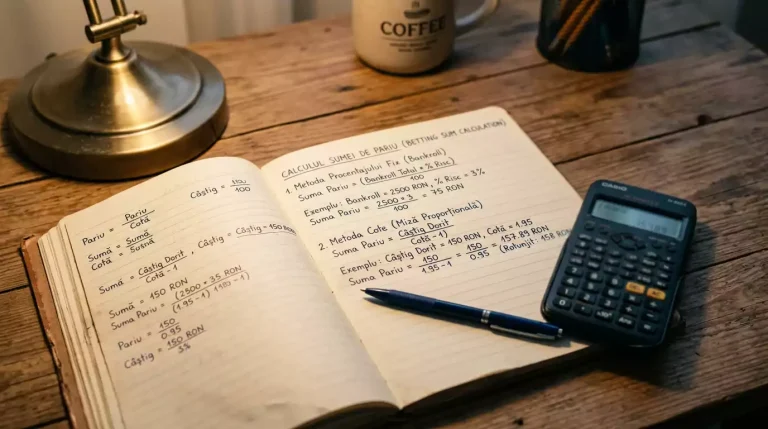 COFFEE
Pariu = Pariu / Cotă
Câștig = / 100
Sumă = Sumă
Cotă = 
Sumă = Câștig Dorit / Cotă - 1 , Câștig = Câștig - 150 RON
Sumă = 150 RON
Suma Pariu = (2500 × 35 RON / (1.95 - 1)
Pariu = 150 / 0.95
Câștig = 150 RON / 3%
CALCULUL SUMEI DE PARIU (BETTING SUM CALCULATION)
1. Metoda Procentajului Fix (Bankroll)
Suma Pariu = (Bankroll Total × % Risc) / 100
Exemplu: Bankroll = 2500 RON, % Risc = 3%
Suma Pariu = 2500 × 3 / 100 = 75 RON
2. Metoda Cote (Miză Proporțională)
Suma Pariu = Câștig Dorit / (Cotă - 1)
Exemplu: Câștig Dorit = 150 RON, Cotă = 1.95
Suma Pariu = 150 / 1.95 - 1 = 150 / 0.95 = 157.89 RON (Rotunjit: 158 RON)
CASIO